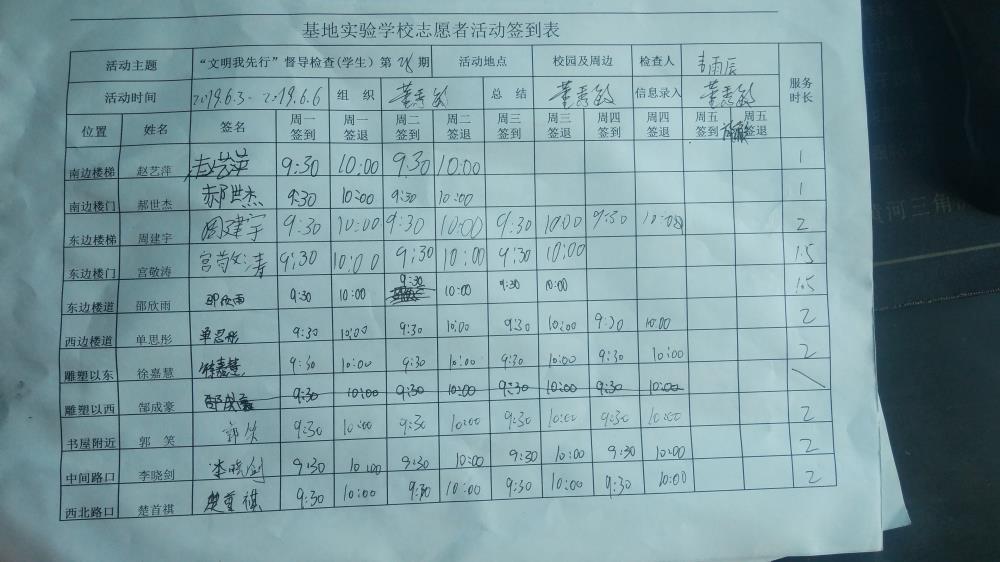 基地实验学校志愿者活动签到表
活动主题 “文明我先行”督导检查(学生) 第 28 期 活动地点 校园及周边 检查人
活动时间 2019.6.3-2019.6.6 组 织 董秀敏 总 结 董秀敏 信息录入 董秀敏 服务时长
位置 姓名 签名 周一签到 周一签退 周二签到 周二签退 周三签到 周三签退 周四签到 周四签退 周五签到 周五签退
南边楼梯 赵艺萍 赵艺萍 9:30 10:00 9:30 10:00 1
南边楼门 郝世杰 郝世杰 9:30 10:00 9:30 10:00 1
东边楼梯 周建宇 周建宇 9:30 10:00 9:30 10:00 9:30 10:00 9:30 10:00 2
东边楼门 宫敬涛 宫敬涛 9:30 10:00 9:30 10:00 9:30 10:00 1.5
东边楼道 邵欣雨 邵欣雨 9:30 10:00 9:30 10:00 9:30 10:00 1.5
西边楼道 单思彤 单思彤 9:30 10:00 9:30 10:00 9:30 10:00 9:30 10:00 2
雕塑以东 徐嘉慧 徐嘉慧 9:30 10:00 9:30 10:00 9:30 10:00 9:30 10:00 2
雕塑以西 郜成豪 9:30 10:00 9:30 10:00 9:30 10:00 9:30 10:00 \
书屋附近 郭 笑 郭笑 9:30 10:00 9:30 10:00 9:30 10:00 9:30 10:00 2
中间路口 李晓剑 李晓剑 9:30 10:00 9:30 10:00 9:30 10:00 9:30 10:00 2
西北路口 楚首祺 楚首祺 9:30 10:00 9:30 10:00 9:30 10:00 9:30 10:00 2
河三角